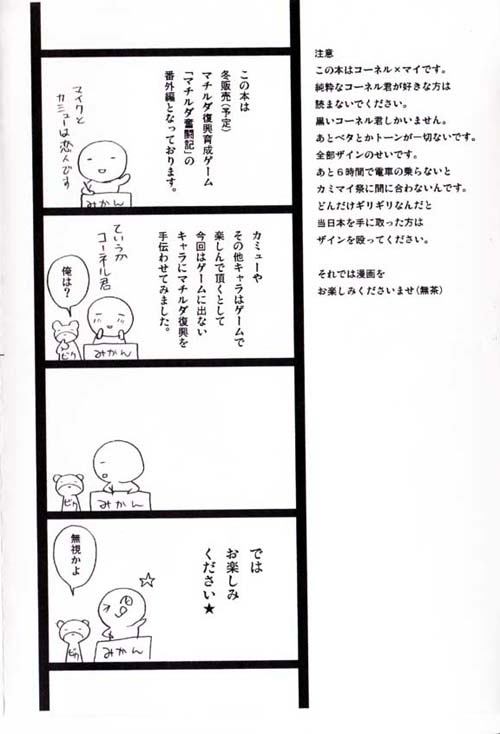 注意
この本はコーネル×マイです。
純粋なコーネル君が好きな方は
読まないでください。
黒いコーネル君しかいません。
あとベタとかトーンが一切ないです。
全部ザインのせいです。
あと6時間で電車の乗らないと
カミマイ祭に間に合わないんです。
どんだけギリギリなんだと
当日本を手に取った方は
ザインを殴ってください。
それでは漫画を
お楽しみくださいませ(無茶)
この本は
冬販売(予定)
マチルダ復興育成ゲーム
「マチルダ奮闘記」の
番外編となっております。
マイクと
カミューは恋人です
みかん
カミューや
その他キャラはゲームで
楽しんで頂くとして
今回はゲームに出ない
キャラにマチルダ復興を
手伝わせてみました。
ていうか
コーネル君
俺は?
みかん
ピク
みかん
ピク
では
お楽しみ
ください★
無視かよ
みかん
ピク